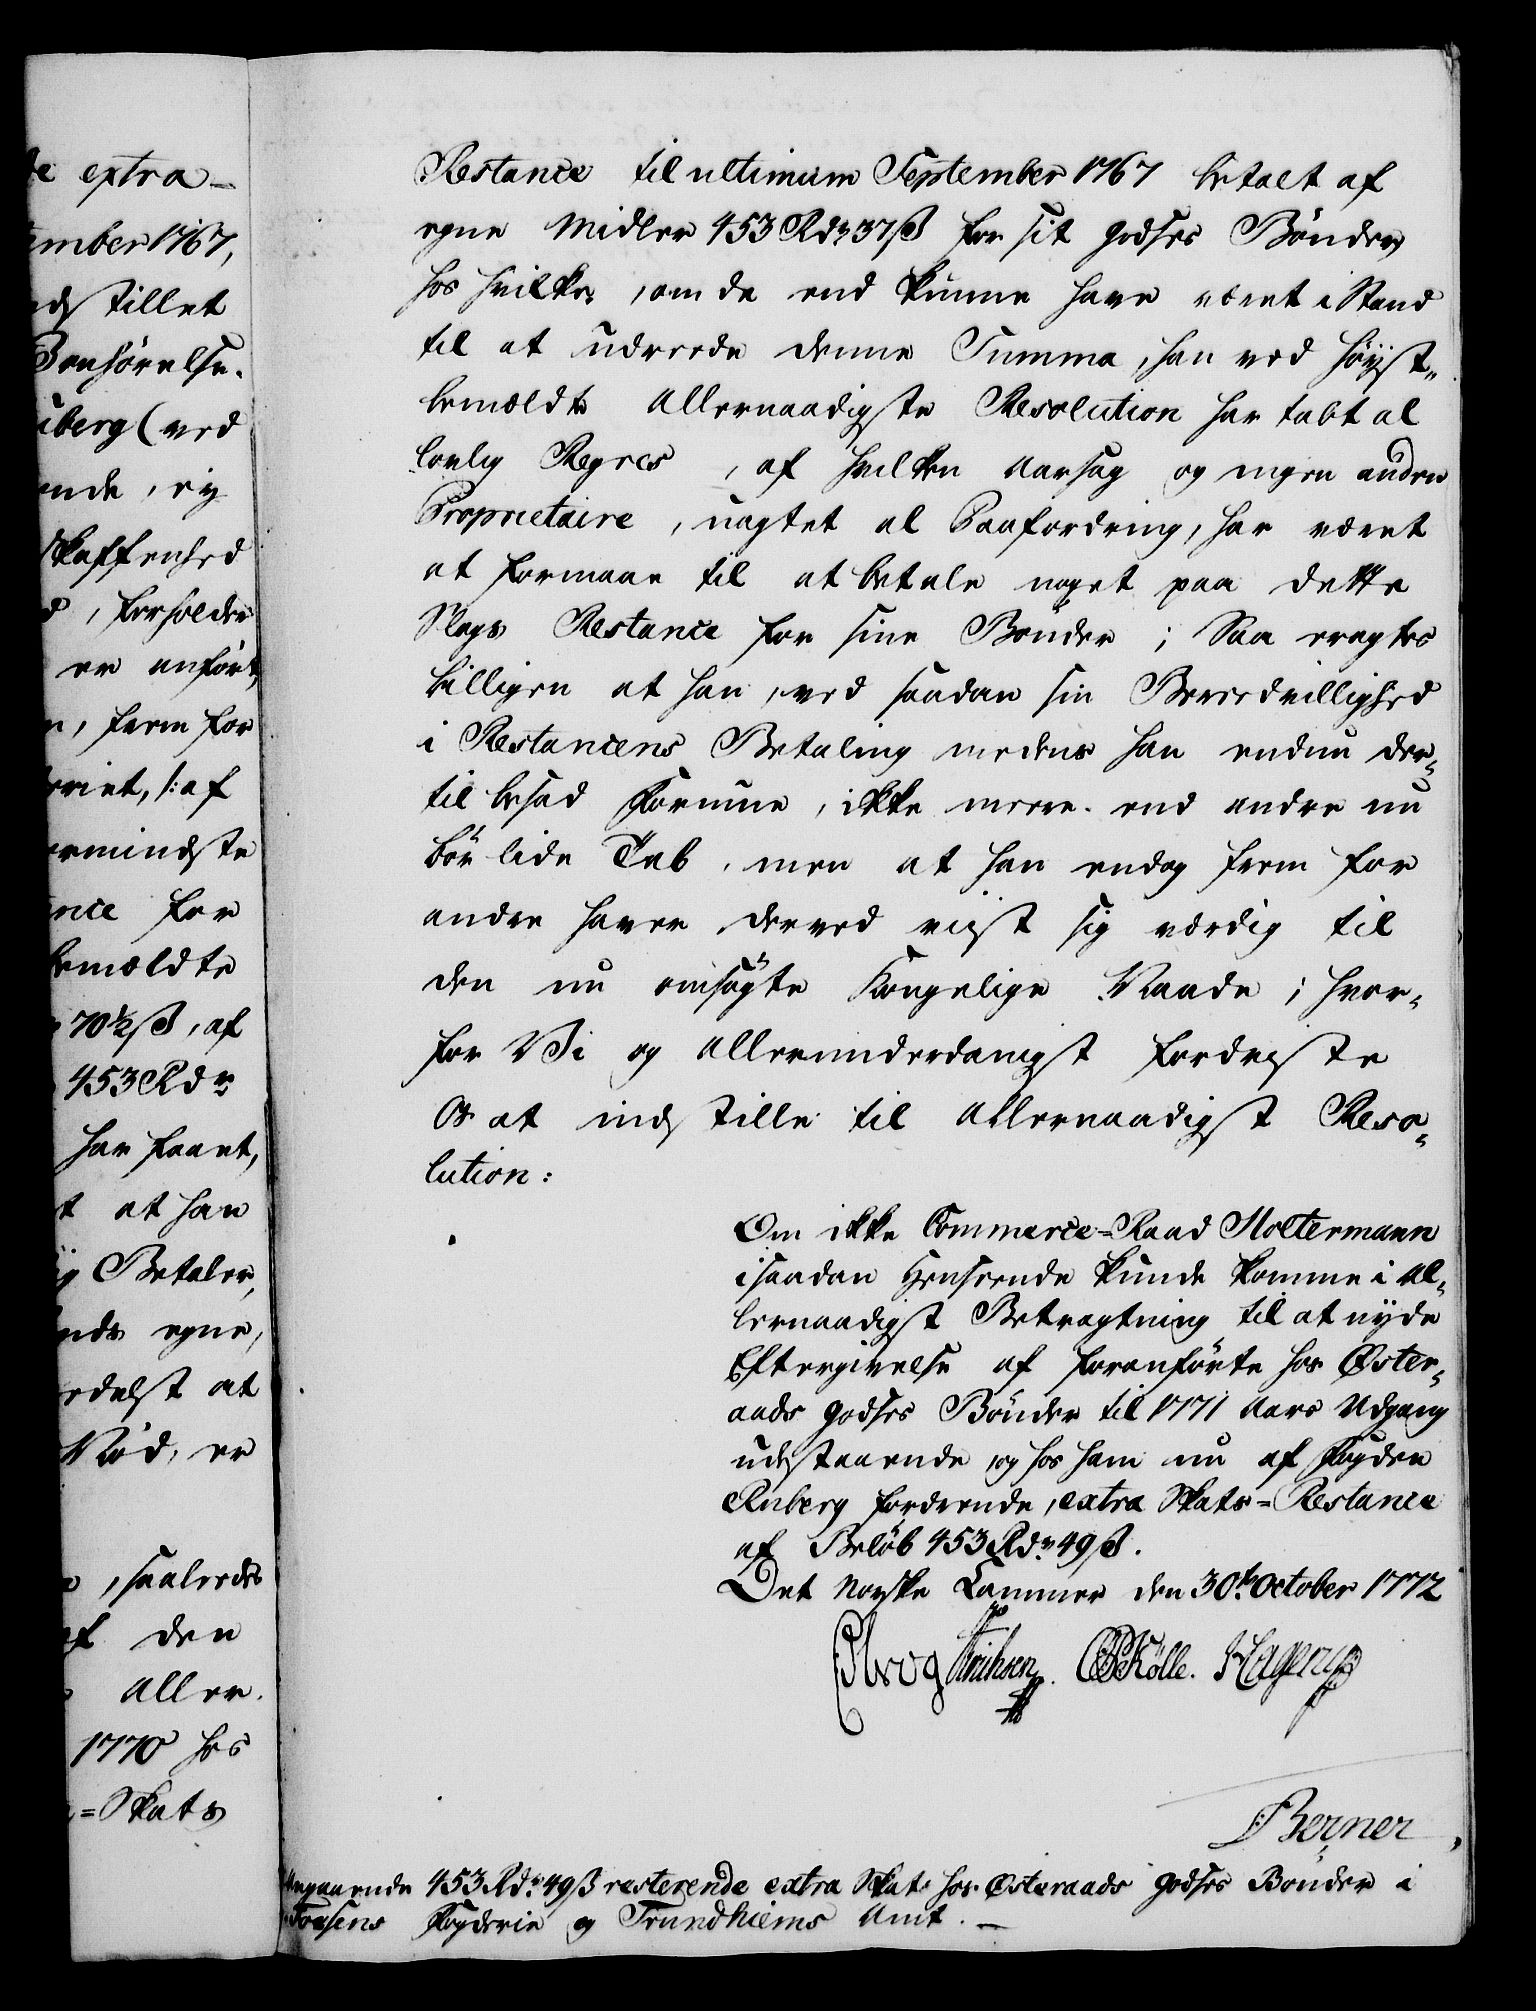 te extra-
tember 1767,
indstillet
Bønhørelse.
uberg (ved
ende, ey
skaffenhed
d, forholder
er anført,
n, frem for
eriet, /: af
ermindste
ance for
bemældte
70½ ß, af
453 Rdr
har faaet,
t at han
ig Betaler,
ends egne,
edelst at
Nød, er
, saaledes
af den
Aller-
1770 hos
a=Skats
Restance til ultimum September 1767 betalt af
egne Midler 453 Rdr 37 ß for sit Godses Bønder,
hos hvilke, om de end kunne have været i Stand
til at udreede denne Summa, han ved høyst-
bemældte Allernaadigste Resolution har tabt al
lovlig Regres, af hvilken Aarsag og ingen anden
Proprietaire, uagtet al Paafordring, har været
at formaae til at betale noget paa dette
Slags Restance for sine Bønder; Saa eragtes
billigen at han, ved saadan sin Bereedvillighed
i Restancens Betaling medens han endnu der-
til besad Formue, ikke meere end andre nu
bør lide Tab, men at han endog frem for
andre haver derved viist sig værdig til
den nu omsøgte Kongelige Naade; hvor-
for Vi og allerunderdanigst fordriste
Os at indstille til Allernaadigst Reso-
lution:
Om ikke Commerce-Raad Holtermann
i saadan Henseende kunde komme i Al-
lernaadigst Betragtning til at nyde
Eftergivelse af foranførte hos Øster-
aads Godses Bønder til 1771 Aars Udgang
udestaaende, og hos ham nu af Fogden
Ruberg fordrende, extra Skats-Restance
af Beløb 453 Rdr 49 ß.
Det Norske Cammer den 30te October 1772
Erichsen. Kölle. Hagerup
Berner
Angaaende 453 Rdr 49 ß resterende extra Skat hos Østeraads Godses Bønder i
Fosens Fogderie og Trundhiems Amt. -